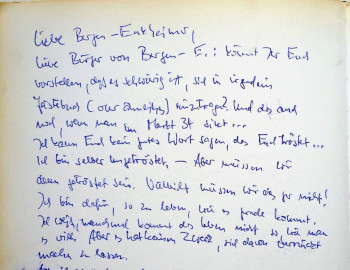 Liebe Bergen-Enkheimer,
liebe Bürger von Bergen-E.: könnt Ihr Euch
vorstellen, dass es schwierig ist, sich in irgendein
Gästebuch (oder ähnliches) einzutragen? Und das auch
noch, wenn man im Markt 34 sitzt...
Ich kann Euch kein gutes Wort sagen, das Euch tröstet...
Ich bin selber ungetröstet – Aber müssen wir
denn getröstet sein. Vielleicht müssen wir das gar nicht!
Ich bin dafür, so zu leben, wie es gerade kommt.
Ich weiß, manchmal kommt das Leben nicht so, wie man
es will. Aber es hat keinen Zweck, sich davon verrückt
machen zu lassen.